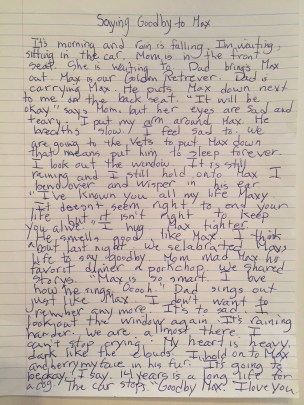 Saying Goodby to Max
It's morning and rain is falling. I'm waiting,
sitting in the car. Mom is in the front
seat. She is waiting to. Dad brings Max
out. Max is our Golden Retrever. Dad is
carrying Max. He puts Max down next
to me on the back seat. "It will be
okay" says Mom but her eyes are sad and
teary. I put my arm around Max. He
breaths slow. I feel sad to. We
are going to the Vets to put Max down
that means put him to sleep forever.
I look out the window. It is still
raining and I still hold onto Max. I
bend over and wisper in his ear
I've known you all my life Maxy
It doesn't seem right to end your
life but it isn't right to keep
you alive. I hug Max tighter.
He smells good like Max. I think
about last night we selabrated Max's
life to say goodby. Mom mad Max his
favorit dinner a porkchop. We shared
storys. "Max is so smart. I love
how he sings Oroon." Dad sings out
just like Max. I don't want to
rember any more. It's to sad. I
look out the window again. It's raining
harder. We are almost there. I
can't stop crying. My heart is heavy,
dark like the clouds. I hold on to Max
and berry my face in his fur. It's going to
be okay, I say. 14 years is a long life for
a dog. The car stops. "Goodby Max, I love you.